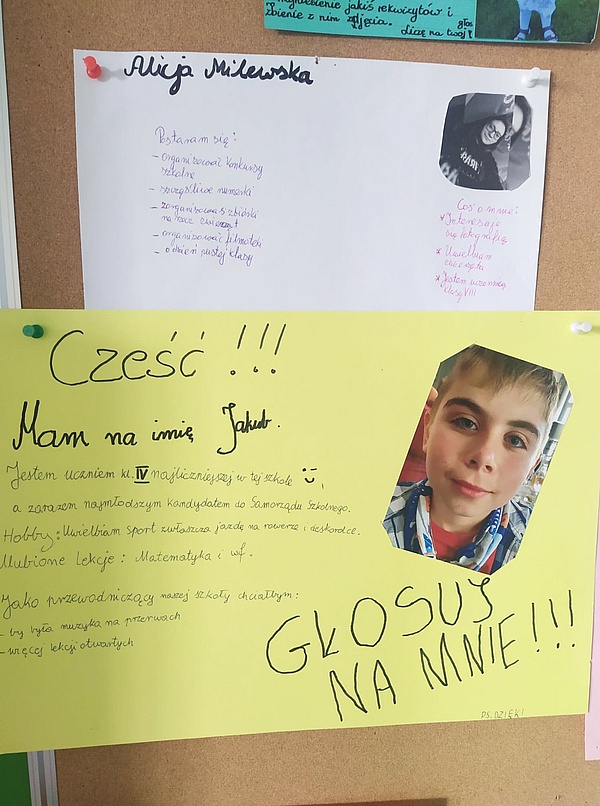 jakiś rekwizytów i
zbienie z nim zdjęcia. głos
Liczę na twój!
Alicja Milewska
Postaram się:
- organizować konkursy
szkolne
- szczęśliwe numerki
- zorganizować zbiórki
na rzecz zwierząt
- organizować filmoteki
- dzień pustej klasy
Coś o mnie:
* Interesuję
się fotografią
* Uwielbiam
zwierzęta
* Jestem uczennicą
klasy VIII
Cześć !!!
Mam na imię Jakub.
Jestem uczniem kl. IV najliczniejszej w tej szkole
a zarazem najmłodszym kandydatem do Samorządu Szkolnego.
Hobby: Uwielbiam sport zwłaszcza jazdę na rowerze i deskorolce.
Ulubione lekcje: Matematyka i wf.
Jako przewodniczący naszej szkoły chciałbym:
- by była muzyka na przerwach
- więcej lekcji otwartych
GŁOSUJ
NA MNIE!!!
PS. DZIĘKI